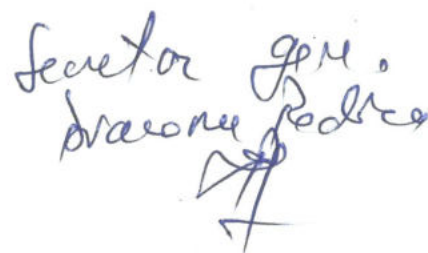 Secretar gen.
Diaconu Rodica